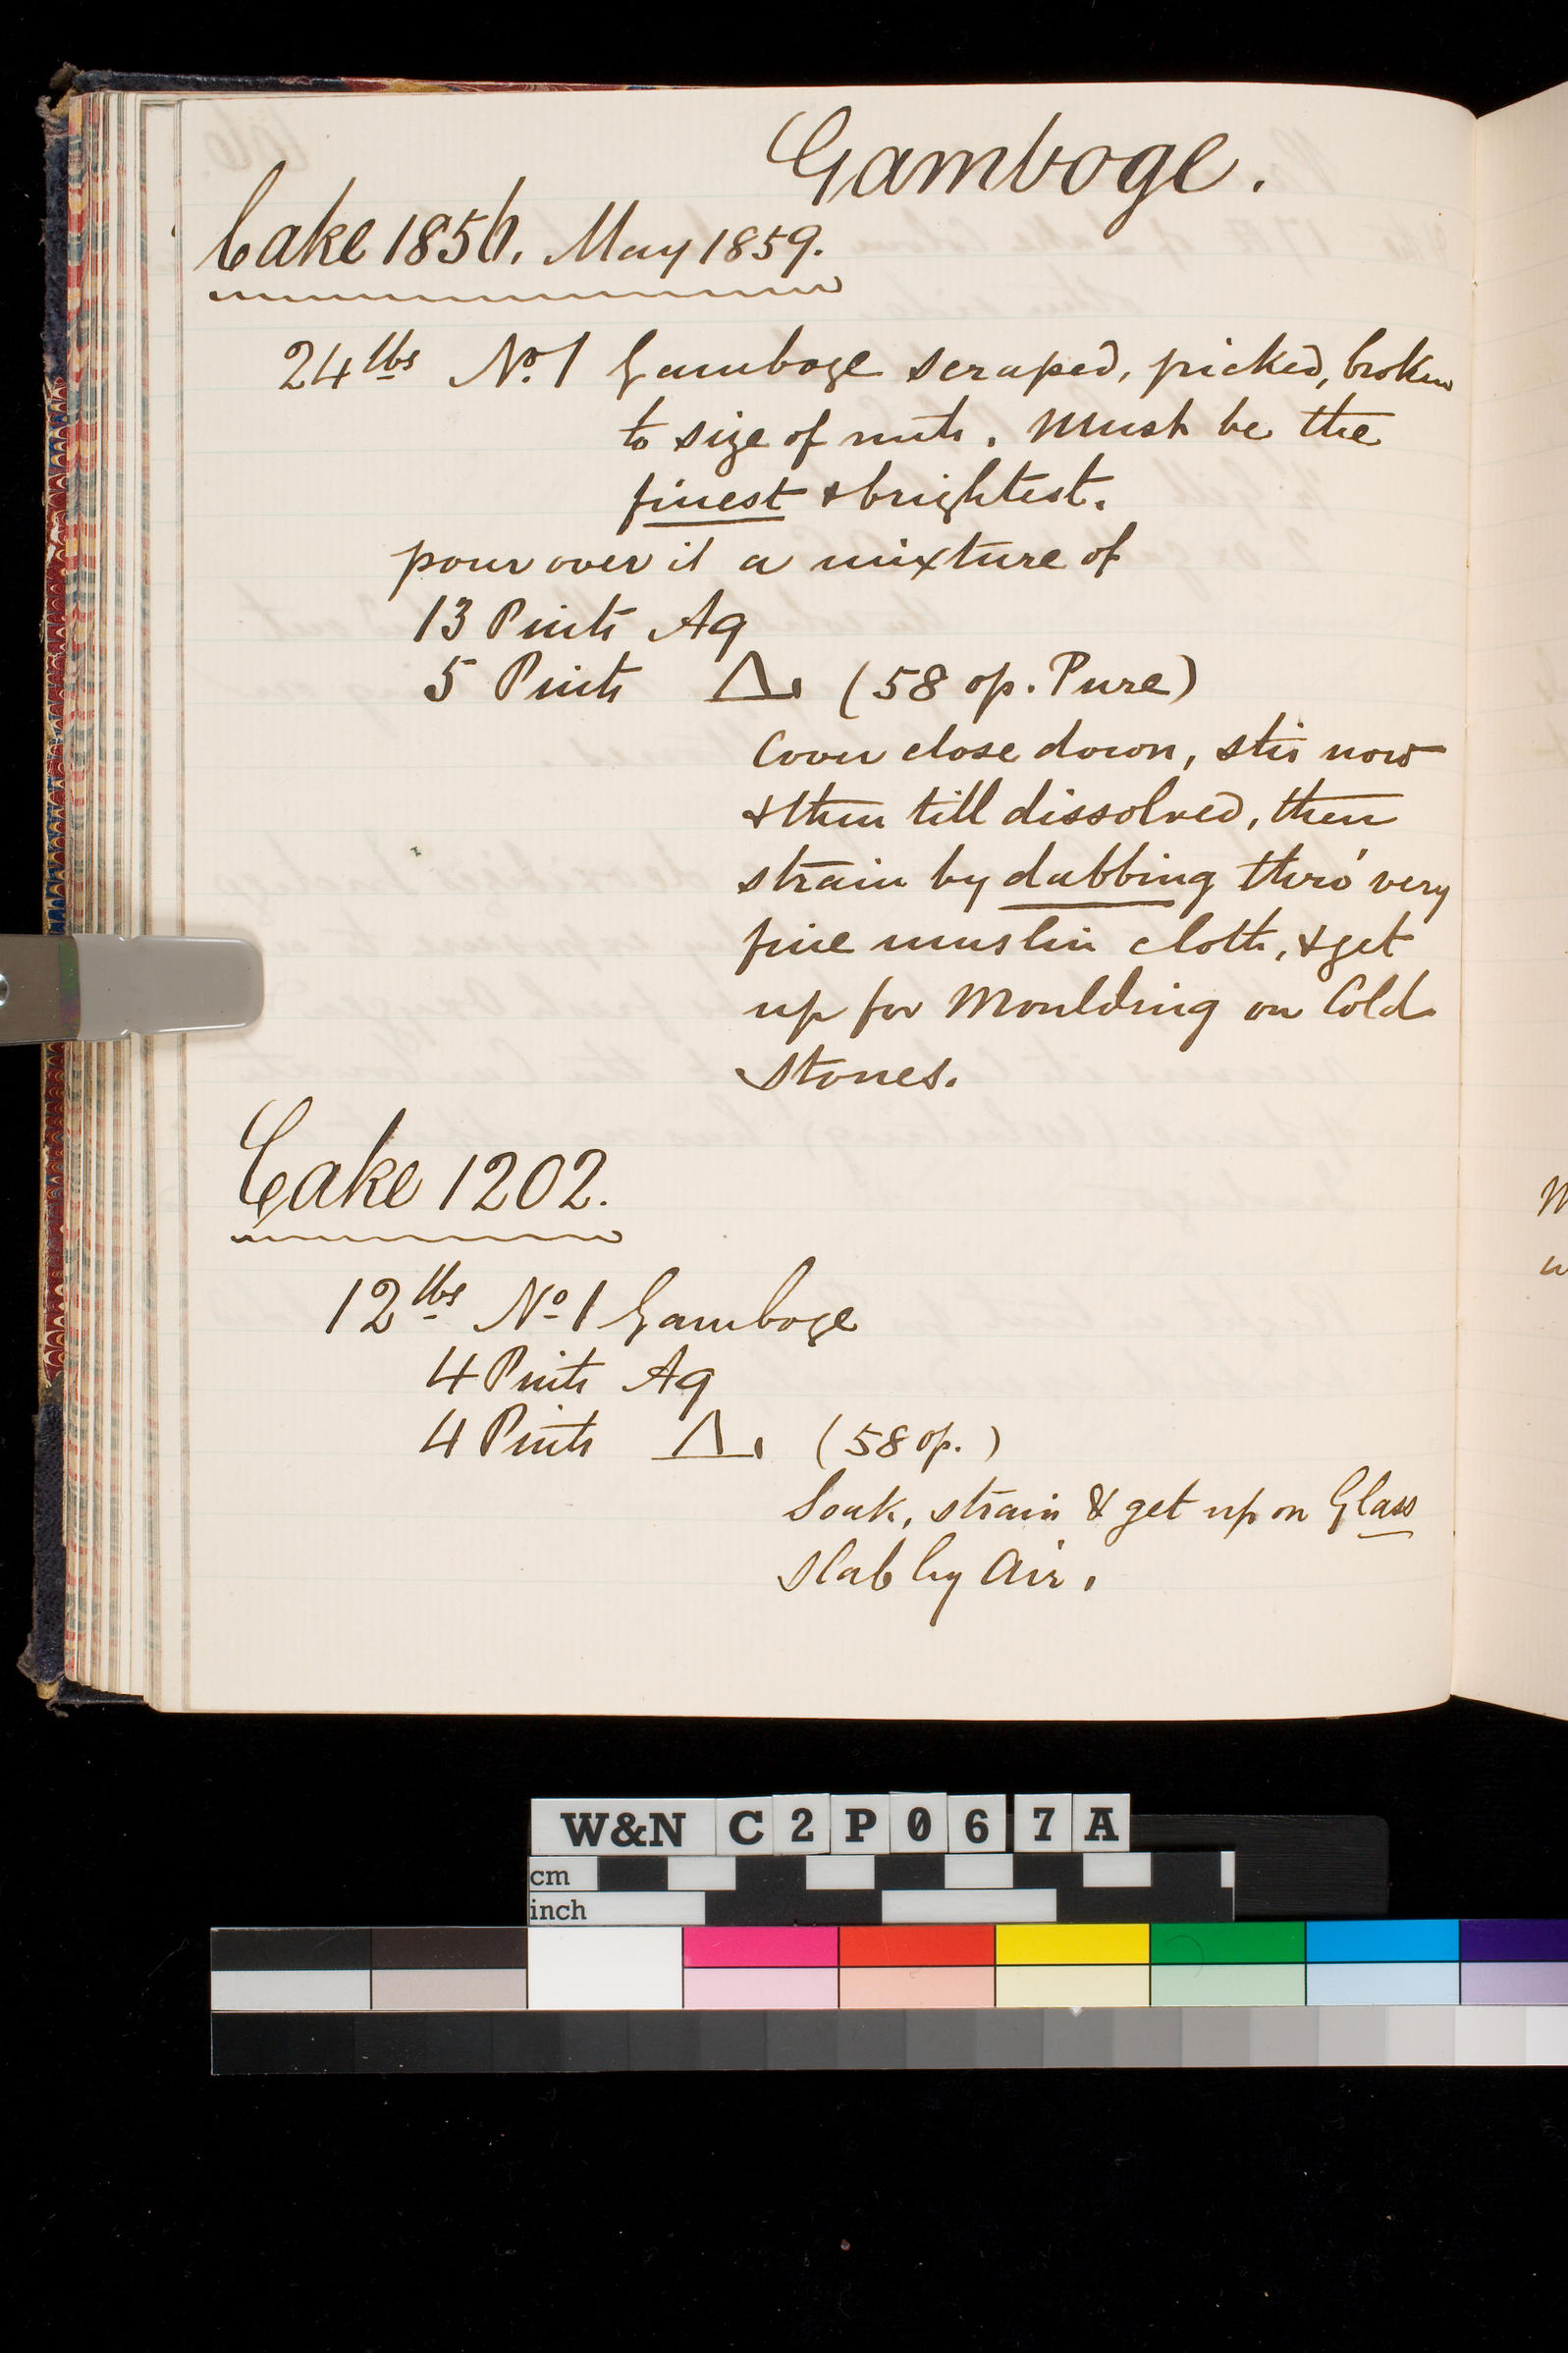 Gamboge.
Cake 1856. May 1859.
24 lbs No. 1 Gamboge scraped, picked, broken
to size of nuts. Must be the
finest & brightest.
pour over it a mixture of
13 Pints Aq
5 Pints Δ. (58 op. Pure)
Cover close down, stir now
& then till dissolved, then
strain by dabbing thro' very
fine muslin cloth, & get
up for Moulding on Cold
Stones.
Cake 1202.
12 lbs No 1 Gamboge
4 Pints Aq
4 Pints Δ. (58 op.)
Soak, strain & get up on Glass
Slab by Air.
W&N C2P067A
cm
inch